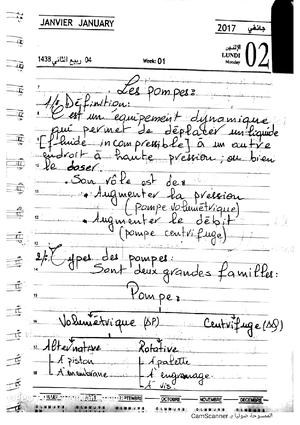 JANVIER JANUARY
2017 جانفي
1438 ربيع الثاني 04
Week: 01
الإثنين
LUNDI
Monday
02
Les pompes:
1/ Définition:
C'est un equipement dynamique
qui permet de déplacer un liquide
[fluide incompressible] à un autre
endroit à haute pression; ou bien
le doser.
• Son rôle est de:
• Augmenter la pression
(pompe volumétrique)
• Augmenter le débit
(pompe centrifuge)
2/ Types des pompes:
Sont deux grandes familles:
Pompe:
Volumétrique (ΔP)
Centrifuge (ΔQ)
Alternative
Rotative
A piston
A palette
A membrane
A engrenage
A vis
SEPTEMBRE OCTOBRE NOVEMBRE DECEMBRE
CamScanner الممسوحة ضوئيا بـ